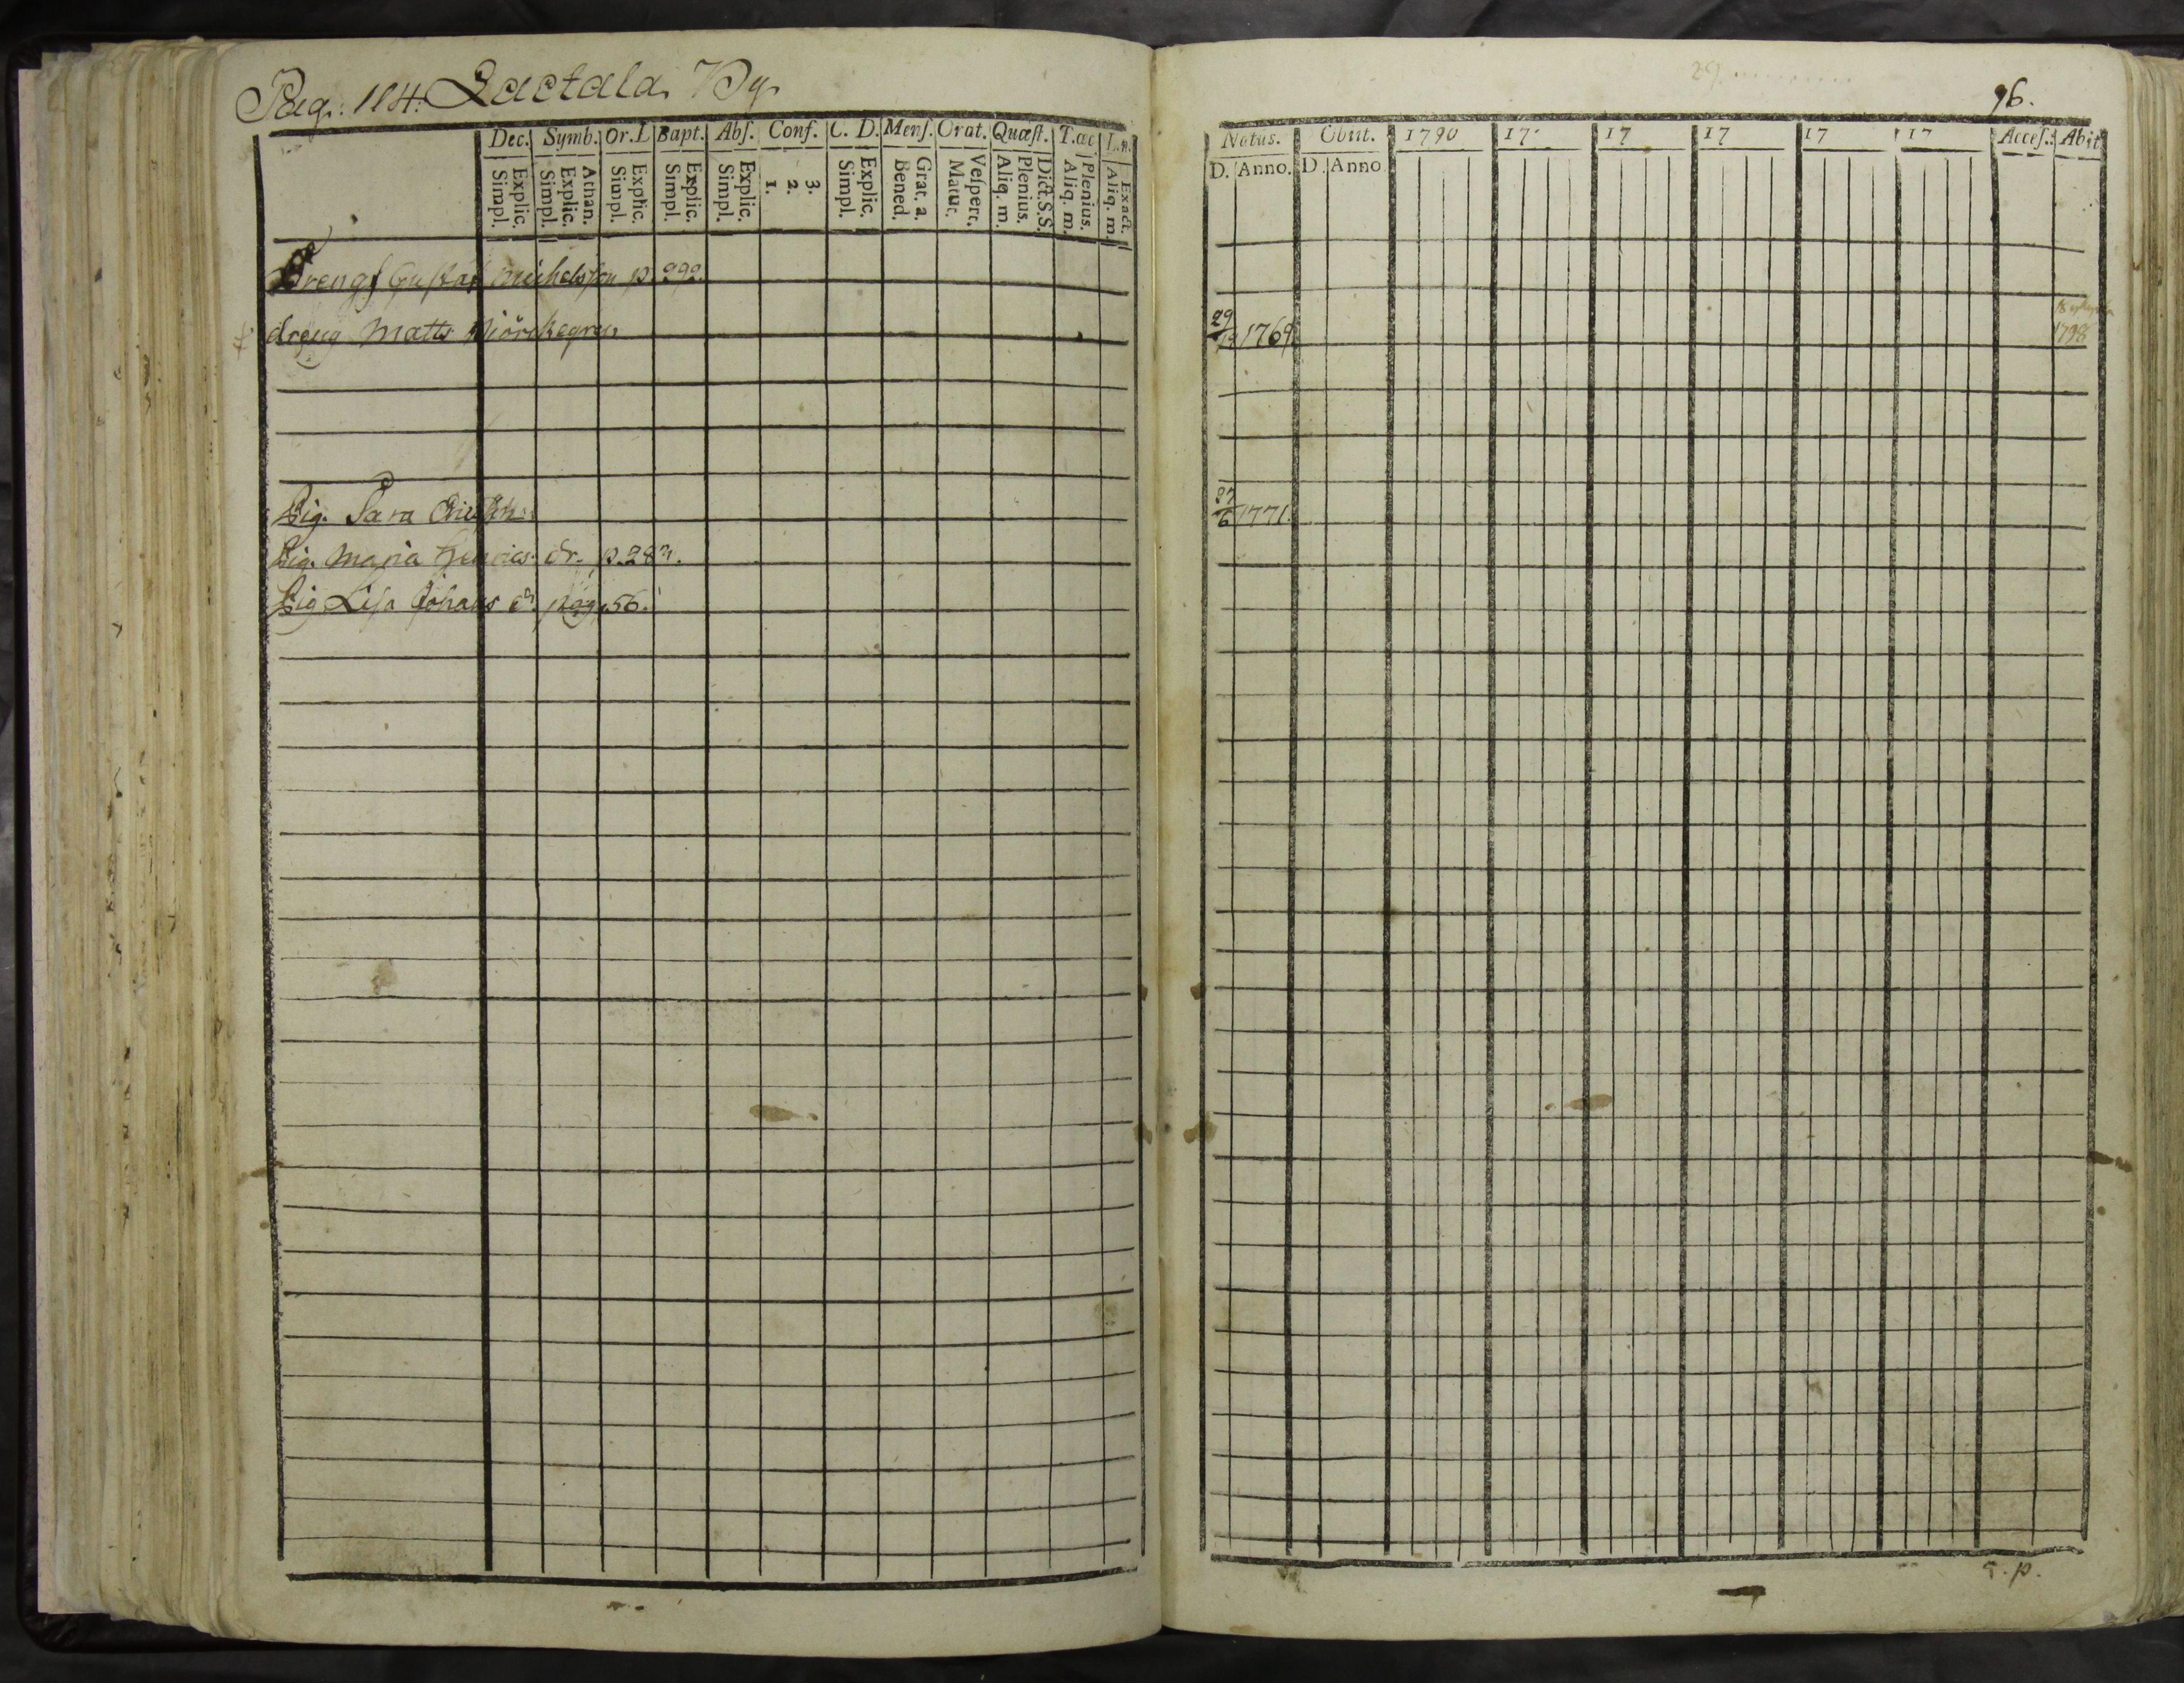 Pag: 114: Laetala By
Dec. Symb. Or.L Bapt. Abſ. Conf. C. D. Menſ. Orat. Quæſt. T.œc L.n.
Explic. Simpl. Athan. Explic. Simpl. Explic. Simpl. Explic. Simpl. Explic. Simpl. 3. 2. 1. Explic. Simpl. Grat. a. Bened. Veſpert. Matut. Dict.S.S. Plenius. Aliq. m. Plenius. Aliq. m. Exact. Aliq. m.
Dreng Gustaf Michelsson p. 292.
dreng Matts
Pig. Sara
Pig. Maria Henrics dr. p. 283.
Pig Lisa Johans dr. pag. 56.
96.
Natus. Obiit. 1790 17 17 17 17 17 Acceſ. Abit
D. Anno. D. Anno
29 1769. 1798
27/6 1771.
T. p.